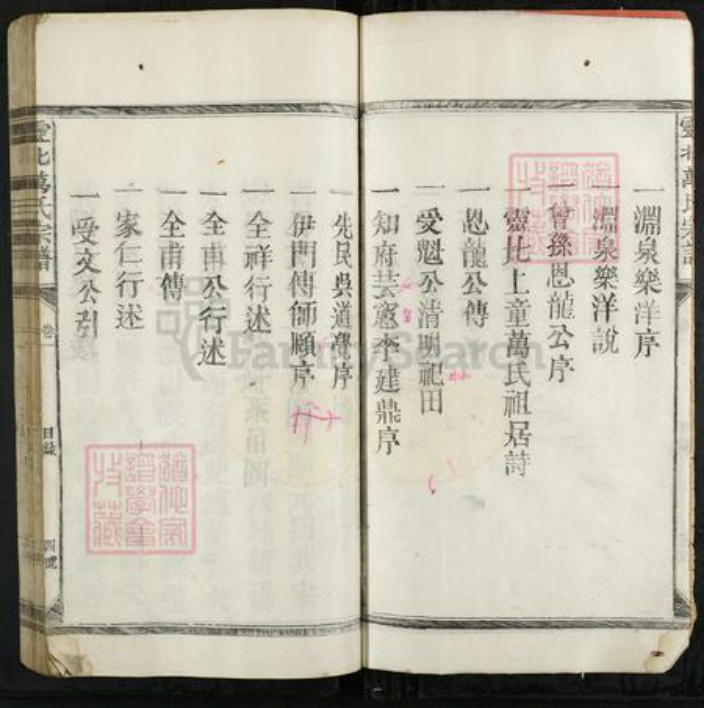 一淵泉樂洋序
一淵泉樂洋說
一曾孫恩龍公序
一靈北上童萬氏祖居詩
一恩龍公傳
一受魁公清明祀田
一知府芸憨李建鼎序
一先民吳道覺序
一伊門傳師願序
一全祥行述
一全甫公行述
一全甫傳
一家仁行述
一受文公引
靈北萬氏宗譜
卷
目錄
四號
FamilySearch